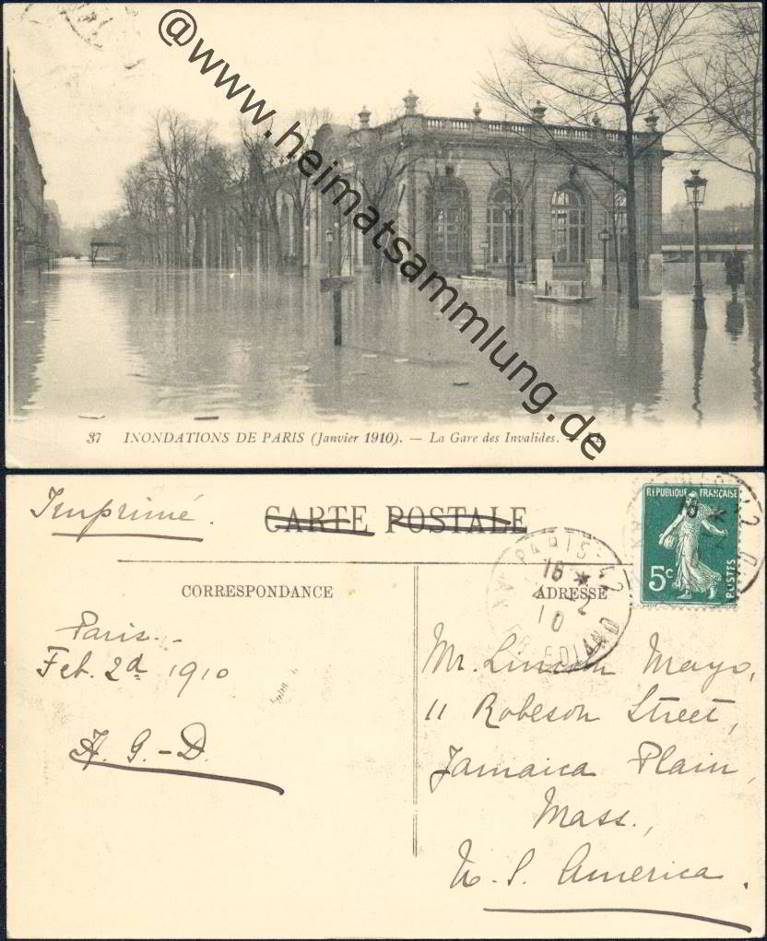 @www.heimatsammlung.de
37 INONDATIONS DE PARIS (Janvier 1910). — La Gare des Invalides. LL
Imprimé.
CARTE POSTALE
REPUBLIQUE FRANÇAISE
5c
POSTES
PARIS-42
18 *
2
10
CORRESPONDANCE
ADRESSE
Paris.
Feb. 2d 1910
A. G.-D.
Mr. Lincoln Mayo,
11 Robeson Street,
Jamaica Plain,
Mass.,
U. S. America.